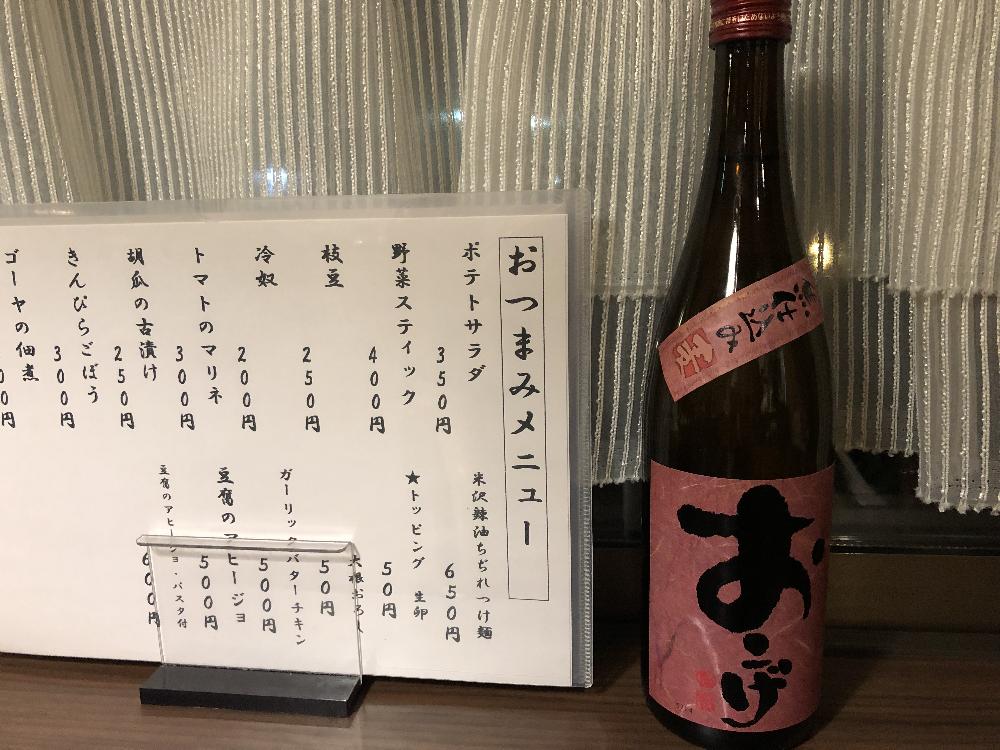 おつまみメニュー
ポテトサラダ
350円
野菜スティック
400円
枝豆
250円
冷奴
200円
トマトのマリネ
300円
胡瓜の古漬け
250円
きんぴらごぼう
300円
ゴーヤの佃煮
00円
米沢辣油ちぢれつけ麺
650円
★トッピング 生卵
50円
大根おろし
50円
ガーリックバターチキン
500円
豆腐のアヒージョ
500円
豆腐のアヒージョ・パスタ付
600円
仕込み
おこげ